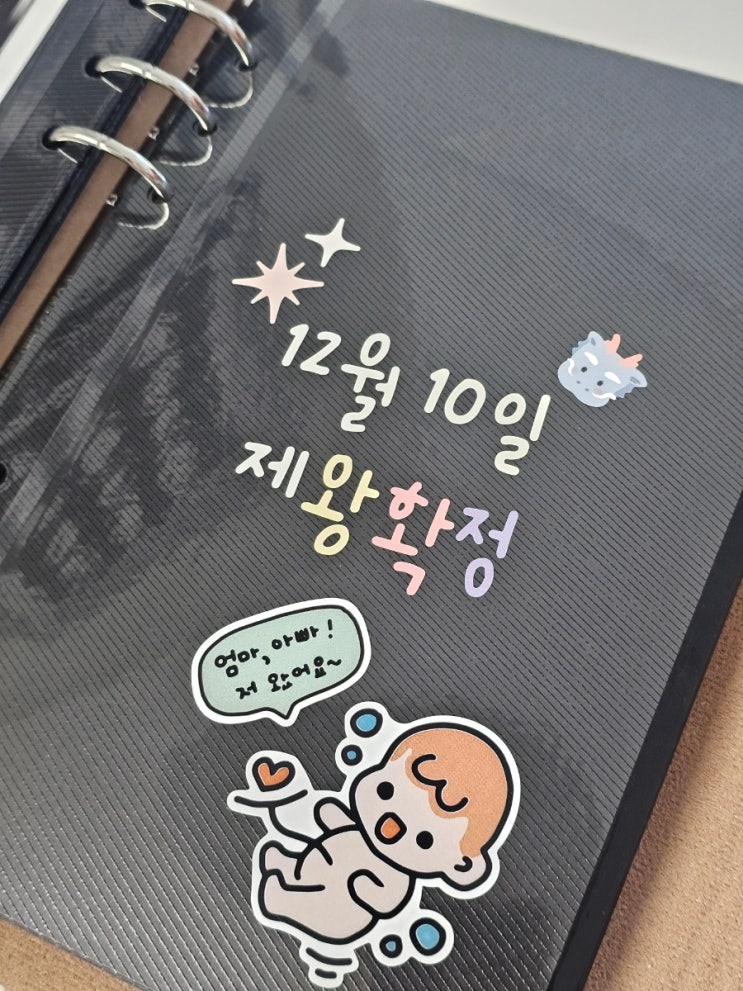 12월 10일
제왕확정
엄마, 아빠!
저 왔어요~